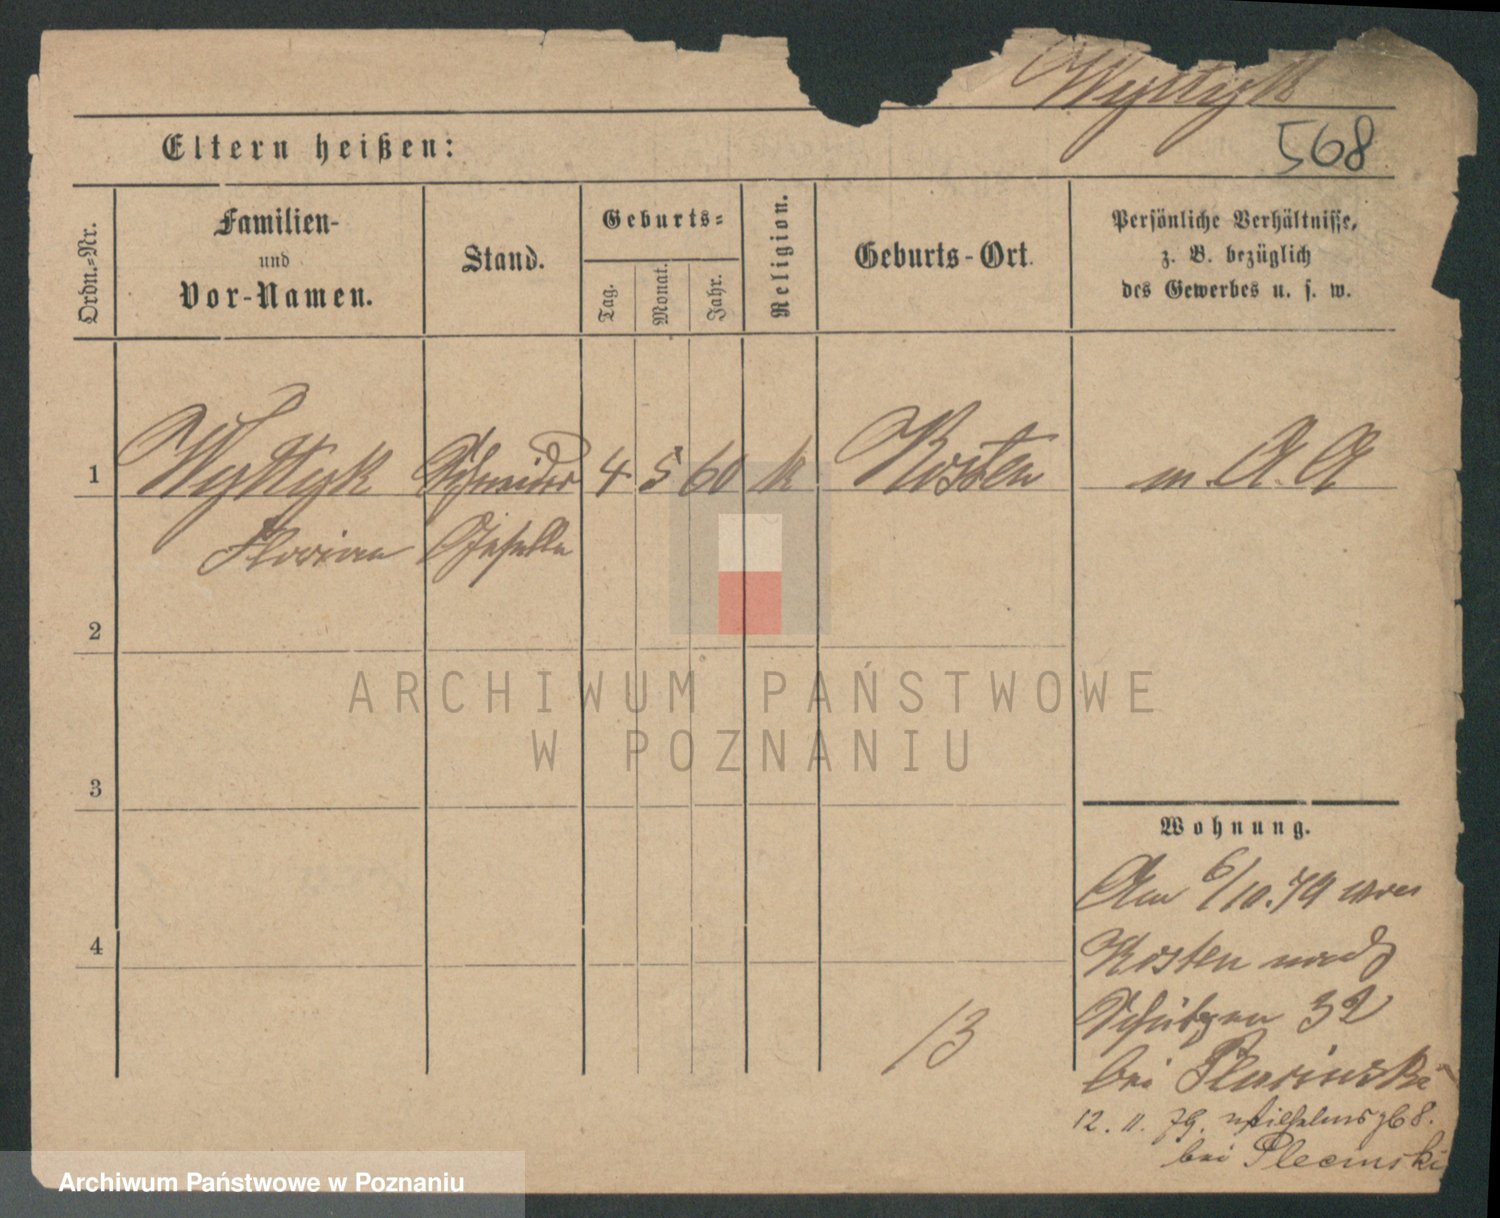 Wyttyk
568
Eltern heißen:
Ordn.=Nr.
Familien-
und
Vor-Namen.
Stand.
Geburts=
Tag.
Monat.
Jahr.
Religion.
Geburts-Ort.
Persönliche Verhältnisse,
z. B. bezüglich
des Gewerbes u. s. w.
1 Wyttyk Schneider 4 5 60 k Kosten m. A. A
Florian Geselle
2
3
4
Wohnung.
Am 6/10.79 von
Kosten nach
Schützen 32
bei
13
12. 11. 79. 
bei
ARCHIWUM PAŃSTWOWE
W POZNANIU
Archiwum Państwowe w Poznaniu